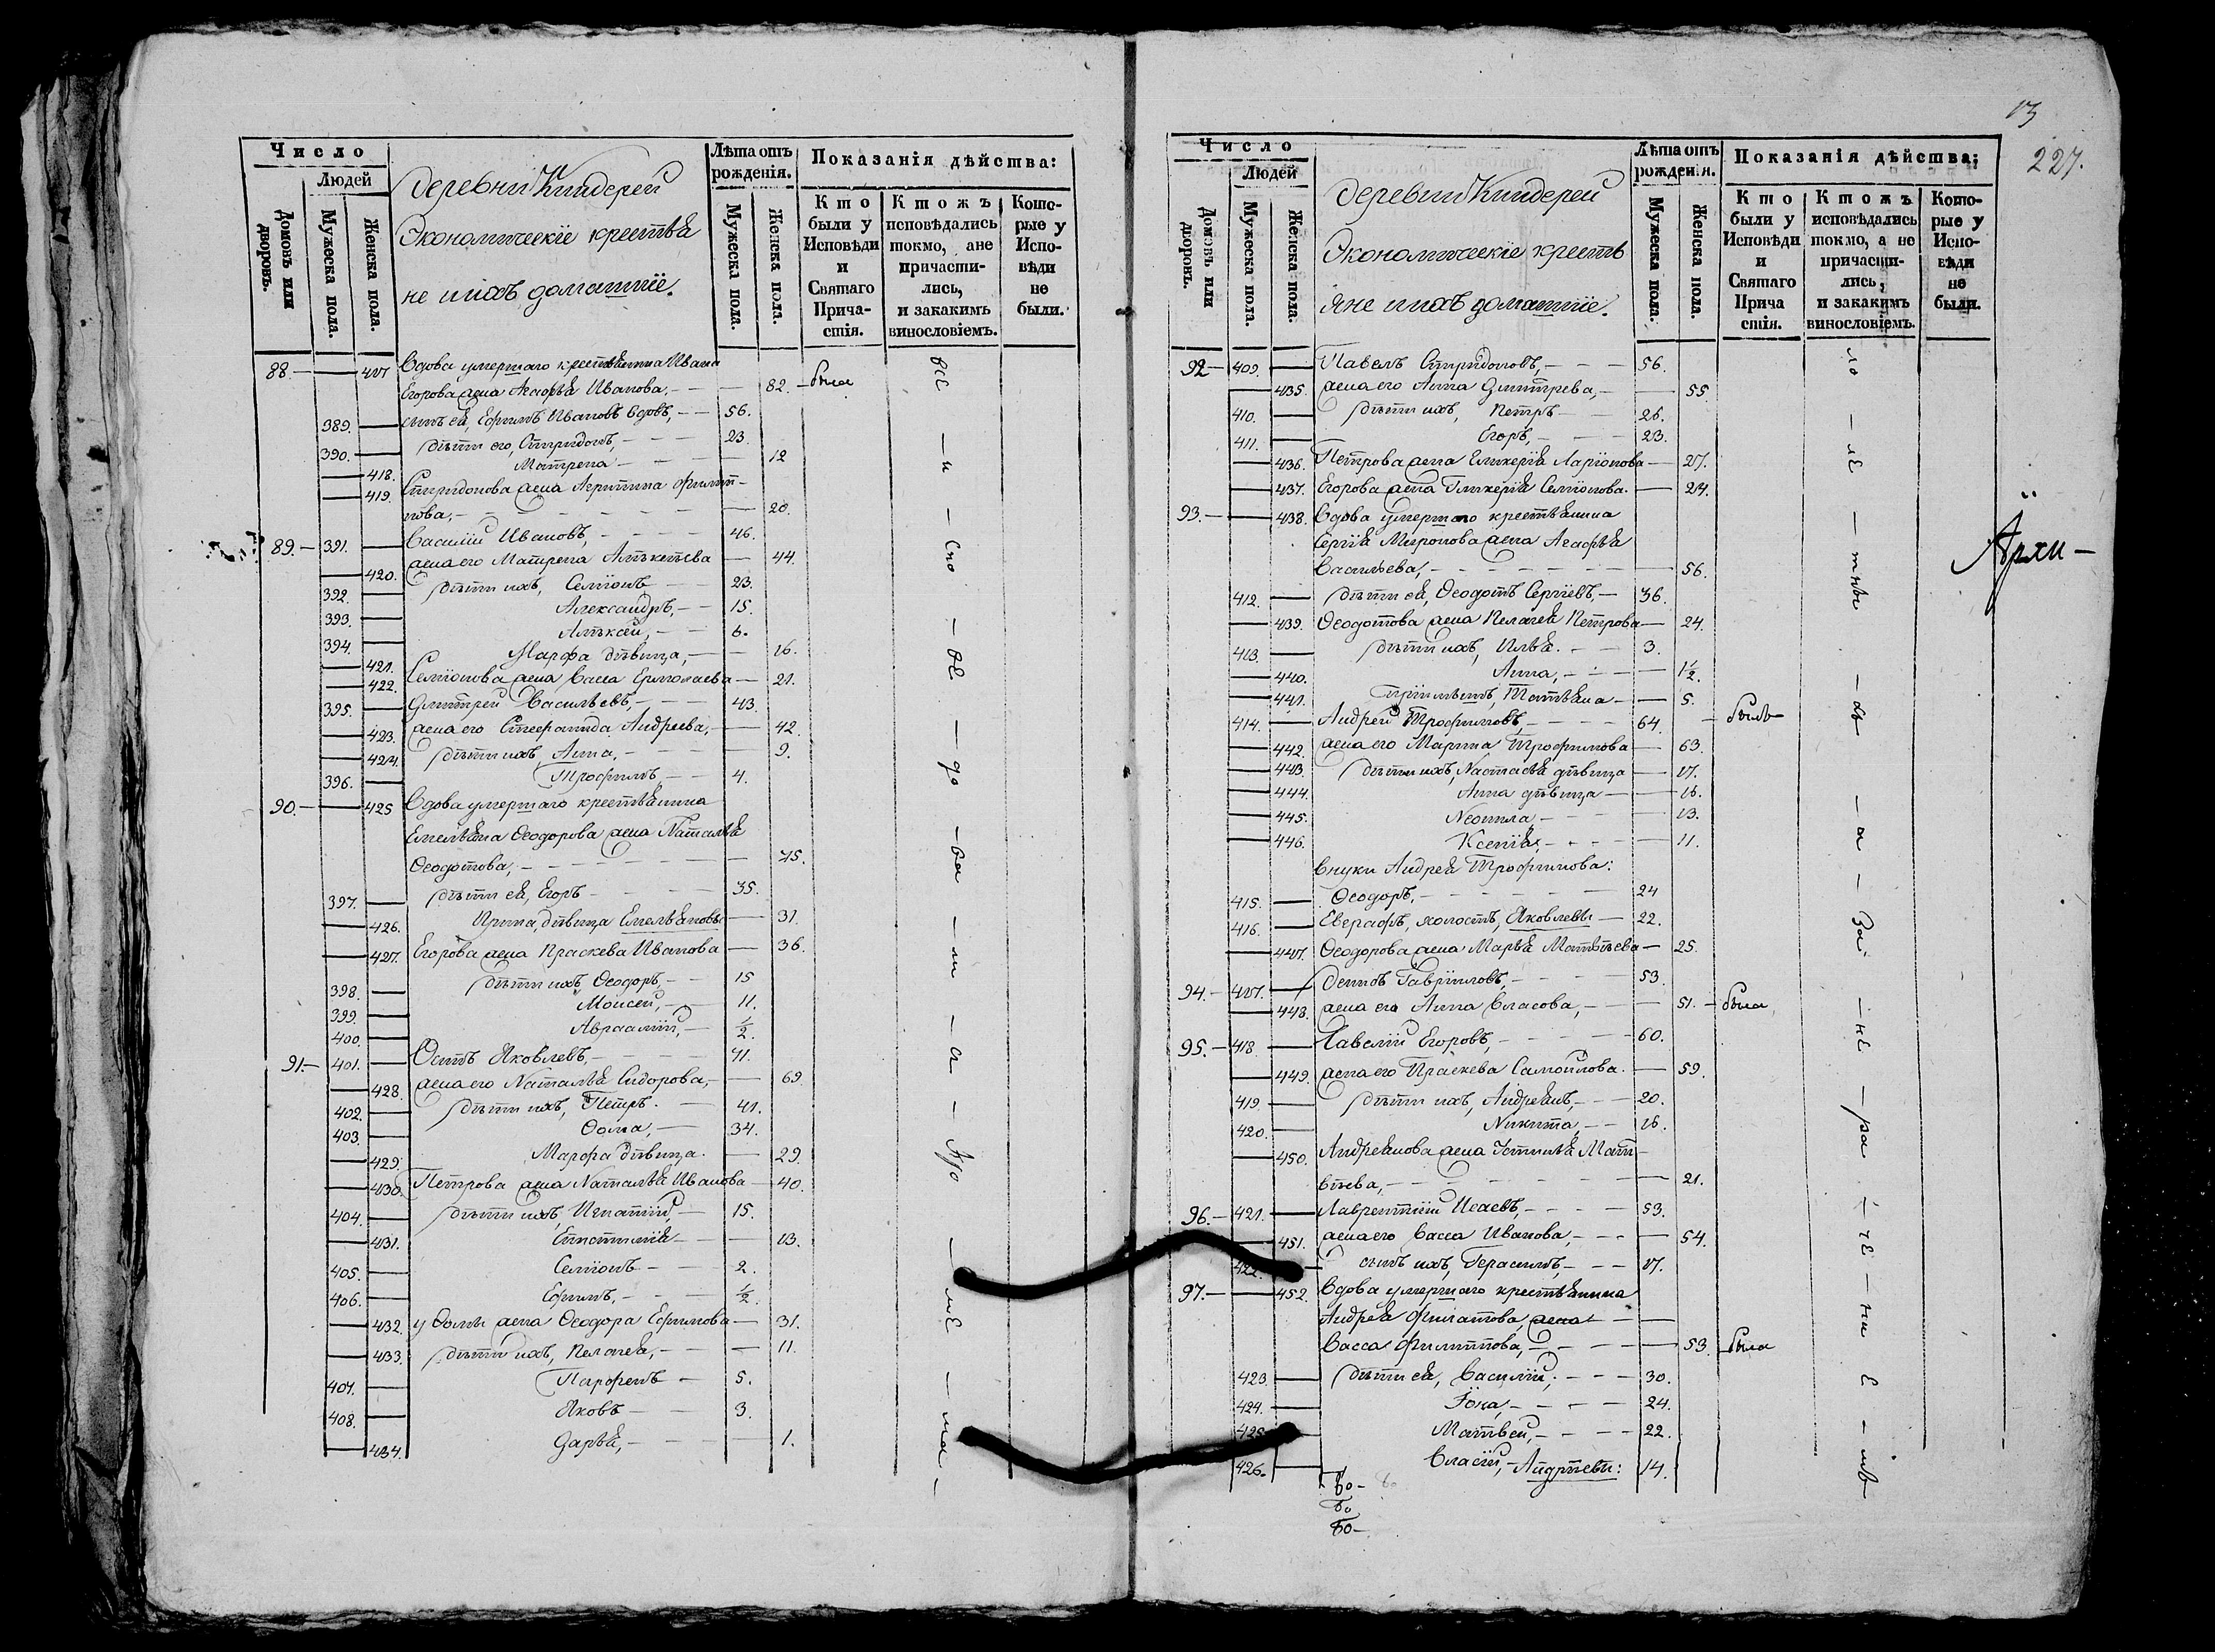 Число
Людей
Домовъ или дворовъ.
Мужеска пола.
Женска пола.
Деревни Киндерей
Экономическїе крестья
не и ихъ домашнїе.
Лѣта отъ рожденія.
Мужеска пола.
Женска пола.
Показанія дѣйства:
Кто были у Исповѣди и Святаго Прича-стія.
Ктожъ исповѣдались токмо, ане причасти-лись, и закакимъ винословіемъ.
Кото-рые у Испо-вѣди не были.
88. — — 417 Вдова умершаго крестьянина Ивана
Егорова жена Агафья Иванова, — — 82. — была
389. — сынъ ея, Ефимъ Ивановъ вдовъ, — — 56.
390. — дѣти его, Спиридонъ, — — — 23.
— 418. Матрена — — — — 12
— 419. Спиридонова жена Агрипина Филип-
пова, — — — — — — — 20.
89. — 391. — Василий Ивановъ, — — — — 46.
— 420. жена его Матрена Алѣксѣева — 44.
392. — дѣти ихъ, Семїонъ — 23.
393. — Александръ, — — 15.
394. — Алѣксей, — — 6.
— 421. Марфа дѣвица, — — 16.
— 422. Семїонова жена Васса Ермолаева — 21.
395. — Дмитрей Васильевъ, — — — 43.
— 423. жена его Стефанида Андреева, — — 42.
— 424. дѣти ихъ, Анна, — — — — 9.
396. — Трофимъ, — — 4.
90. — — 425 Вдова умершаго крестьянина
Емельяна Ѳеодорова жена Наталья
Ѳеодотова, — — — — — — — 75.
397. — дѣти ея, Егоръ — — — — 35.
— 426. Ирина, дѣвица Емельяновы — 31.
— 427. Егорова жена Праскева Иванова — 36.
398. — дѣти ихъ, Ѳеодоръ, — — 15
399. — Моисей, — — 11.
400. — Авраамїй, — ½.
91. — 401. — Осипъ Яковлевъ, — — — — 71.
— 428. жена его Наталья Сидорова, — — 69.
402. — дѣти ихъ, Петръ. — 41.
403. — Ѳома, — 34.
— 429. Марфа дѣвица. — 29.
— 430. Петрова жена Наталья Иванова — 40.
404. — дѣти ихъ, Игнатїй, — 15.
— 431. Епистимїя — — 13.
405. — Семїонъ — — 2.
406. — Ефимъ, — — ½.
— 432. у Ѳомы жена Ѳеодора Ефимова — 31.
— 433. дѣти ихъ, Пелагея, — — — 11.
407. — Парфенъ — 5.
408. — Яковъ — — 3.
— 434. Дарья, — — — — 1.
всѣ — и — спо — вѣ — до — ва — ли — а — про — мѣ — на —
13
227.
Число
Людей
Домовъ или дворовъ.
Мужеска пола.
Женска пола.
Деревни Киндерей
Экономическїе кресть
яне и ихъ домашнїе.
Лѣта отъ рожденія.
Мужеска пола.
Женска пола.
Показанія дѣйства;
Кто были у Исповѣди и Святаго Прича стія.
Ктожъ исповѣдались токмо, а не причасти-лись, и закакимъ винословіемъ.
Кото-рые у Испо-вѣди не были.
92 — 409. — Павелъ Спиридоновъ, — — — 56.
— 435. жена его Анна Дмитрева, — — 55.
410. — дѣти ихъ, Петръ — — 26.
411. — Егоръ, — — — 23.
— 436. Петрова жена Гликерїя Ларїонова — 27.
— 437. Егорова жена Гликерїя Семїонова. — 24.
93. — — 438. Вдова умершаго крестьянина
Сергїя Миронова жена Агафья
Васильева, — — — — — — — 56.
412. — дѣти ея, Ѳеодотъ Сергїевъ, — 36.
— 439. Ѳеодотова жена Пелагея Петрова — 24.
413. — дѣти ихъ, Илья. — — 3.
— 440. Анна, — — — — 1½.
— 441. Татьяна — — 5.
414. — Андрей Трофимовъ, — — — — 64. — былъ
— 442. жена его Марина Трофимова — 63.
— 443. дѣти ихъ, Настасья дѣвица — 17.
— 444. Анна дѣвица — — 16.
— 445. Неонила, — — — — 13.
— 446. Ксенїя, — — — — 11.
Внуки Андрея Трофимова:
415. — Ѳеодоръ, — — — — — 24
416. — Евграфъ, холостъ, Яковлевы — 22.
— 447. Ѳеодорова жена Марья Матвѣева — 25.
94. — 417. — Деписъ Гаврїиловъ, — — — — 53.
— 448. жена его Анна Власова, — — 51. — была
95. — 418. — Савелїй Егоровъ, — — — — 60.
— 449. жена его Праскева Самойлова. — 59.
419. — дѣти ихъ, Андреянъ, — — — 20.
420. — Никита, — — 16.
— 450. Андреянова жена Устинья Мат-
вѣева, — — — — — — — 21.
96. — 421. — Лаврентїй Исаевъ, — — — — 53.
— 451. жена его Васса Иванова, — — — 54.
422. — сынъ ихъ, Герасимъ, — — — 17.
97. — — 452. Вдова умершаго крестьянина
Андрея Филатова, жена — —
Васса Филипова, — — — — — 53. была
423. — дѣти ея, Василїй, — — — 30.
424. — Їона, — — — — 24.
425. — Матвей, — — — — 22.
426. — Власїй, — Андрѣевы: 14.
Архи —